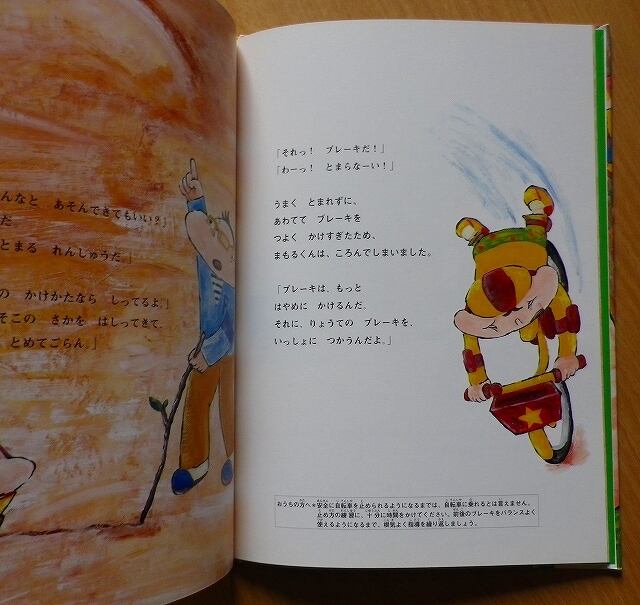 んなと　あそんできてもいい？」
だ。
とまる　れんしゅうだ。」
の　かけかたなら　しってるよ。」
そこの　さかを　はしってきて、
とめてごらん。」
「それっ！　ブレーキだ！」
「わーっ！　とまらなーい！」
うまく　とまれずに、
あわてて　ブレーキを
つよく　かけすぎたため、
まもるくんは、ころんでしまいました。
「ブレーキは、もっと
はやめに　かけるんだ。
それに、りょうての　ブレーキを、
いっしょに　つかうんだよ。」
おうちの方へ＊安全に自転車を止められるようになるまでは、自転車に乗れるとは言えません。
止め方の練習に、十分に時間をかけてください。前後のブレーキをバランスよく
使えるようになるまで、根気よく指導を繰り返しましょう。